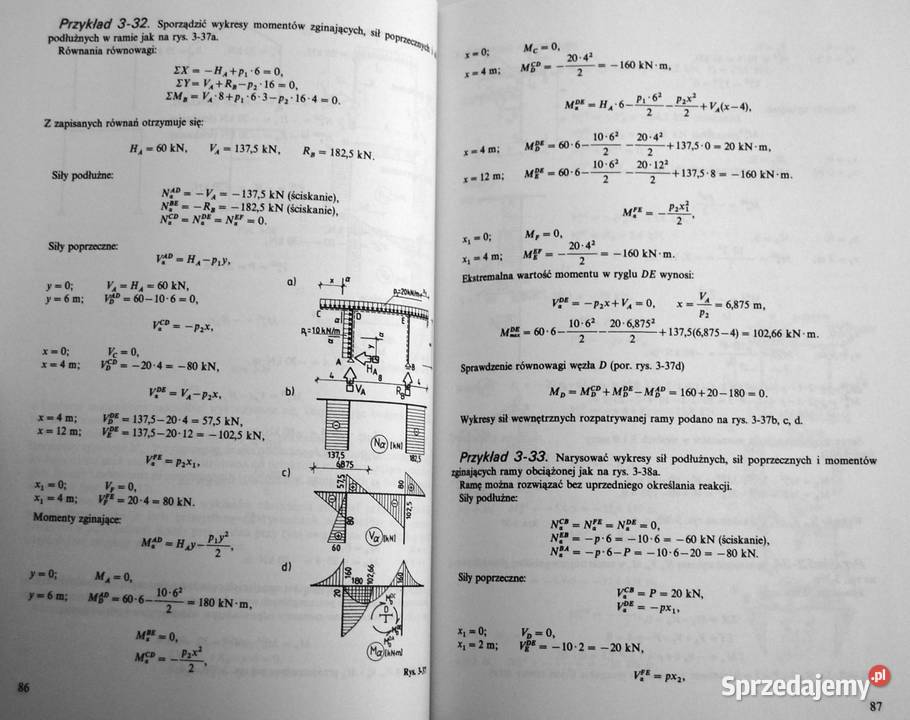 Przykład 3-32. Sporządzić wykresy momentów zginających, sił poprzecznych i
podłużnych w ramie jak na rys. 3-37a.
Równania równowagi:
ΣX = −H_A + p₁·6 = 0,
ΣY = V_A + R_B − p₂·16 = 0,
ΣM_B = V_A·8 + p₁·6·3 − p₂·16·4 = 0.
Z zapisanych równań otrzymuje się:
H_A = 60 kN, V_A = 137,5 kN, R_B = 182,5 kN.
Siły podłużne:
N_α^AD = −V_A = −137,5 kN (ściskanie),
N_α^BE = −R_B = −182,5 kN (ściskanie),
N_α^CD = N_α^DE = N_α^EF = 0.
Siły poprzeczne:
V_α^AD = H_A − p₁y,
y = 0; V_A = H_A = 60 kN,
y = 6 m; V_D^AD = 60 − 10·6 = 0,
V_α^CD = −p₂x,
x = 0; V_C = 0,
x = 4 m; V_D^CD = −20·4 = −80 kN,
V_α^DE = V_A − p₂x,
x = 4 m; V_D^DE = 137,5 − 20·4 = 57,5 kN,
x = 12 m; V_E^DE = 137,5 − 20·12 = −102,5 kN,
V_α^FE = p₂x₁,
x₁ = 0; V_F = 0,
x₁ = 4 m; V_E^FE = 20·4 = 80 kN.
Momenty zginające:
M_α^AD = H_A y − p₁y²/2,
y = 0; M_A = 0,
y = 6 m; M_D^AD = 60·6 − 10·6²/2 = 180 kN·m,
M_α^BE = 0,
M_α^CD = − p₂x²/2,
86
a)
x α
p₂=20kN/m
C D E
p₁=10 kN/m
α
y
A H_A B
4 4
V_A R_B
b)
⊖ ⊖
Nα [kN]
137,5 182,5
c)
6,875
57,5 80
80 102,5
60
Vα [kN]
d)
160 180 102,66 160
20
D
Mα [kNm]
Rys. 3-37
x = 0; M_C = 0,
x = 4 m; M_D^CD = − 20·4²/2 = −160 kN·m,
M_α^DE = H_A·6 − p₁·6²/2 − p₂x²/2 + V_A(x−4),
x = 4 m; M_D^DE = 60·6 − 10·6²/2 − 20·4²/2 + 137,5·0 = 20 kN·m,
x = 12 m; M_E^DE = 60·6 − 10·6²/2 − 20·12²/2 + 137,5·8 = −160 kN·m.
M_α^FE = − p₂x₁²/2,
x₁ = 0; M_F = 0,
x₁ = 4 m; M_E^EF = − 20·4²/2 = −160 kN·m.
Ekstremalna wartość momentu w ryglu DE wynosi:
V_α^DE = −p₂x + V_A = 0, x = V_A/p₂ = 6,875 m,
M_max^DE = 60·6 − 10·6²/2 − 20·6,875²/2 + 137,5(6,875−4) = 102,66 kN·m.
Sprawdzenie równowagi węzła D (por. rys. 3-37d)
M_D = M_D^CD + M_D^DE − M_D^AD = 160 + 20 − 180 = 0.
Wykresy sił wewnętrznych rozpatrywanej ramy podano na rys. 3-37b, c, d.
Przykład 3-33. Narysować wykresy sił podłużnych, sił poprzecznych i momentów
zginających ramy obciążonej jak na rys. 3-38a.
Ramę można rozwiązać bez uprzedniego określania reakcji.
Siły podłużne:
N_α^CB = N_α^FE = N_α^DE = 0,
N_α^EB = −p·6 = −10·6 = −60 kN (ściskanie),
N_α^BA = −p·6 − P = −10·6 − 20 = −80 kN.
Siły poprzeczne:
V_α^CB = P = 20 kN,
V_α^DE = −px₁,
x₁ = 0; V_D = 0,
x₁ = 2 m; V_E^DE = −10·2 = −20 kN,
V_α^FE = px₂,
87
Sprzedajemy.pl